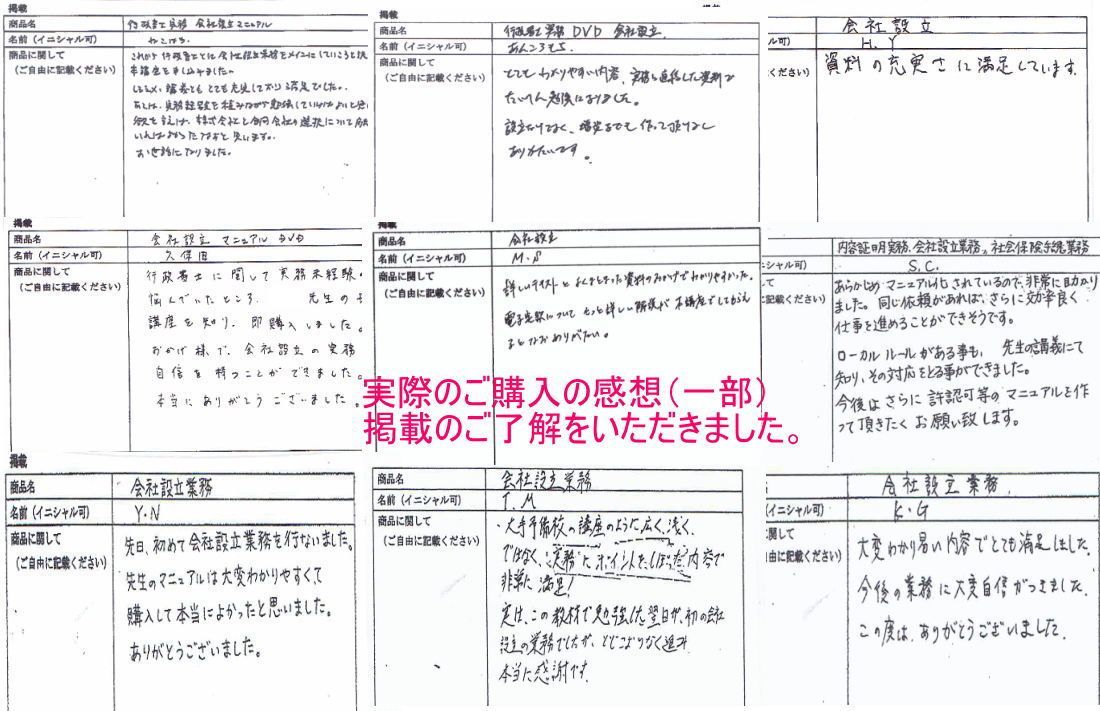 掲載
商品名
行政書士実務 会社設立マニュアル
名前（イニシャル可）
商品に関して
（ご自由に記載ください）
これから行政書士として会社設立業務をメインにしていこうと
本講座を申し込みました。
とても充実しており満足でした。
株式会社と合同会社の選択について
いればよかったかなと思います。
お世話になりました。
掲載
商品名
行政書士実務 DVD 会社設立
名前（イニシャル可）
商品に関して
（ご自由に記載ください）
とてもわかりやすい内容、実務に直結した資料で
たいへん勉強になりました。
設立だけでなく、
ありがたいです。
会社設立
ル可）
H.Y
ください）
資料の充実さに満足しています。
掲載
商品名
会社設立マニュアルDVD
名前（イニシャル可）
久保田
商品に関して
（ご自由に記載ください）
行政書士に関して実務未経験。
悩んでいたところ、 先生の
講座を知り、即購入しました。
おかげ様で、会社設立の実務
自信を持つことができました。
本当にありがとうございました。
掲載
商品名
会社設立
名前（イニシャル可）
M.S
商品に関して
（ご自由に記載ください）
詳しいテキストと 資料のおかげでわかりやすかった。
電子定款についてもっと詳しい解説が本講座でしてもらえ
るとなおありがたい。
内容証明実務、会社設立業務、社会保険手続業務
シャル可）
S.C.
して
記載ください）
あらかじめマニュアル化されているので、非常に助かり
ました。同じ依頼があれば、さらに効率良く
仕事を進めることができそうです。
ローカルルールがある事も、 先生の講義にて
知り、その対応をとる事ができました。
今後はさらに許認可等のマニュアルを作
って頂きたくお願い致します。
実際のご購入の感想（一部）
掲載のご了解をいただきました。
掲載
商品名
会社設立業務
名前（イニシャル可）
Y.N
商品に関して
（ご自由に記載ください）
先日、初めて会社設立業務を行ないました。
先生のマニュアルは大変わかりやすくて
購入して本当によかったと思いました。
ありがとうございました。
商品名
会社設立業務
名前（イニシャル可）
T.M
商品に関して
（ご自由に記載ください）
・大手予備校の講座のように広く、浅く、
ではなく、"実務"にポイントをしぼった内容で
非常に満足！
実は、この教材で勉強した翌日が、初の会社
設立の業務でしたが、とどこおりなく進み
本当に感謝です。
会社設立業務
イニシャル可）
K.G
関して
由に記載ください）
大変わかり易い内容でとても満足しました。
今後の業務に大変自信がつきました。
この度は、ありがとうございました。